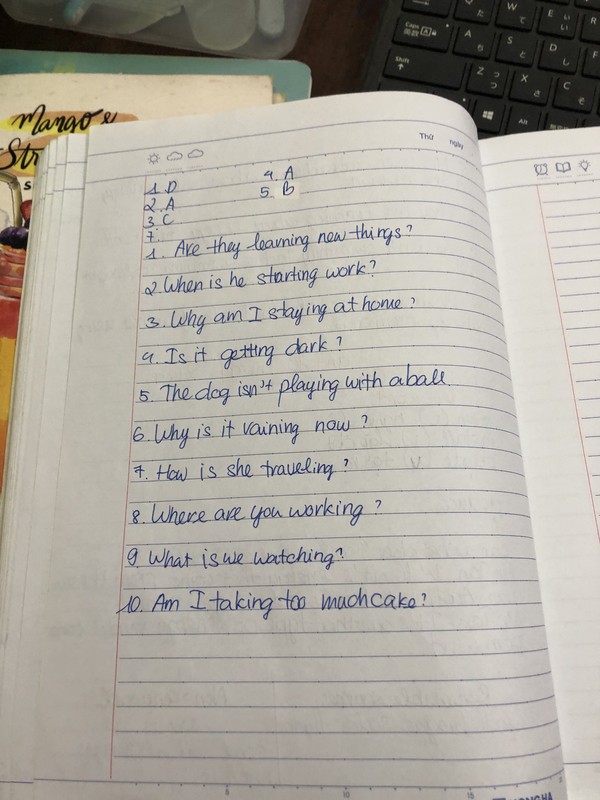 Mango &
Str
S
Thứ ngày
1. D
2. A
3. C
4. A
5. B
7.
1. Are they learning new things?
2. When is he starting work?
3. Why am I staying at home?
4. Is it getting dark?
5. The dog isn't playing with a ball
6. Why is it vaining now?
7. How is she traveling?
8. Where are you working?
9 What is we watching?
10. Am I taking too much cake?
Q
W
E
Caps
英数
A
S
D
F
Shift
Z
X
C
Alt
5
10
15